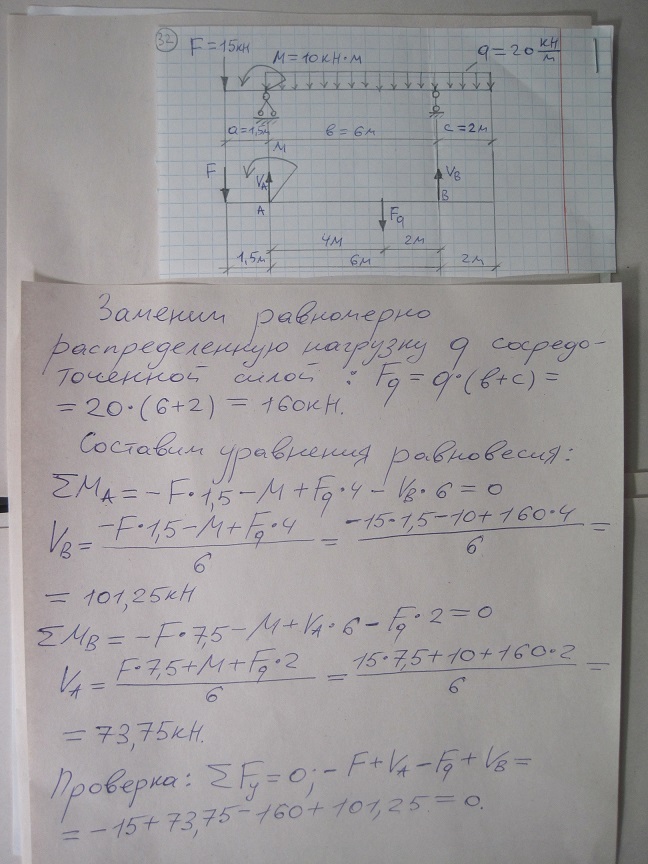 32
F=15кН
M=10кН·м
q=20 кН/м
a=1,5м
в=6м
c=2м
M
F
VA
VB
A
B
Fq
4м
2м
1,5м
6м
2м
Заменим равномерно
распределенную нагрузку q сосредо-
точенной силой: Fq=q·(в+c)=
=20·(6+2)=160кН.
Составим уравнения равновесия:
ΣMA=-F·1,5-M+Fq·4-VB·6=0
VB= (-F·1,5-M+Fq·4)/6 = (-15·1,5-10+160·4)/6 =
= 101,25кН
ΣMB=-F·7,5-M+VA·6-Fq·2=0
VA= (F·7,5+M+Fq·2)/6 = (15·7,5+10+160·2)/6 =
= 73,75кН.
Проверка: ΣFy=0; -F+VA-Fq+VB=
=-15+73,75-160+101,25=0.